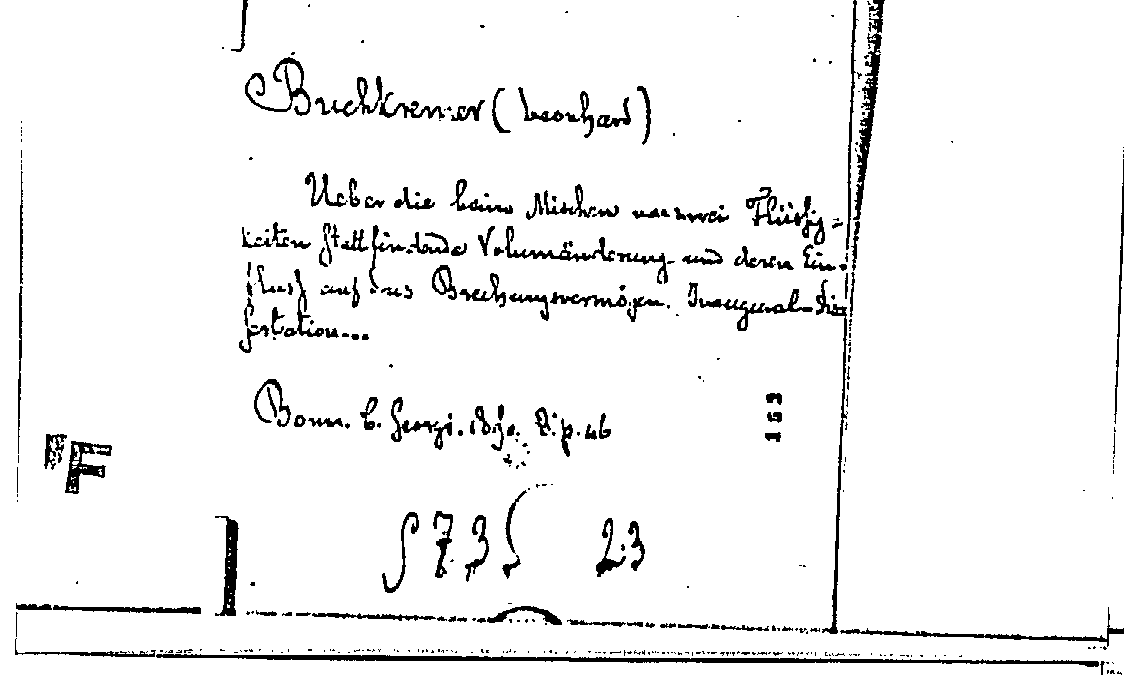 Buchkremer (Leonhard)
Ueber die beim Mischen von zwei Flüssig-
keiten stattfindende Volumänderung und deren Ein-
fluss auf das Brechungsvermögen. Inaugural-Dis
sertation...
Bonn. C. Georgi. 8° p. 46
153
F
73 23